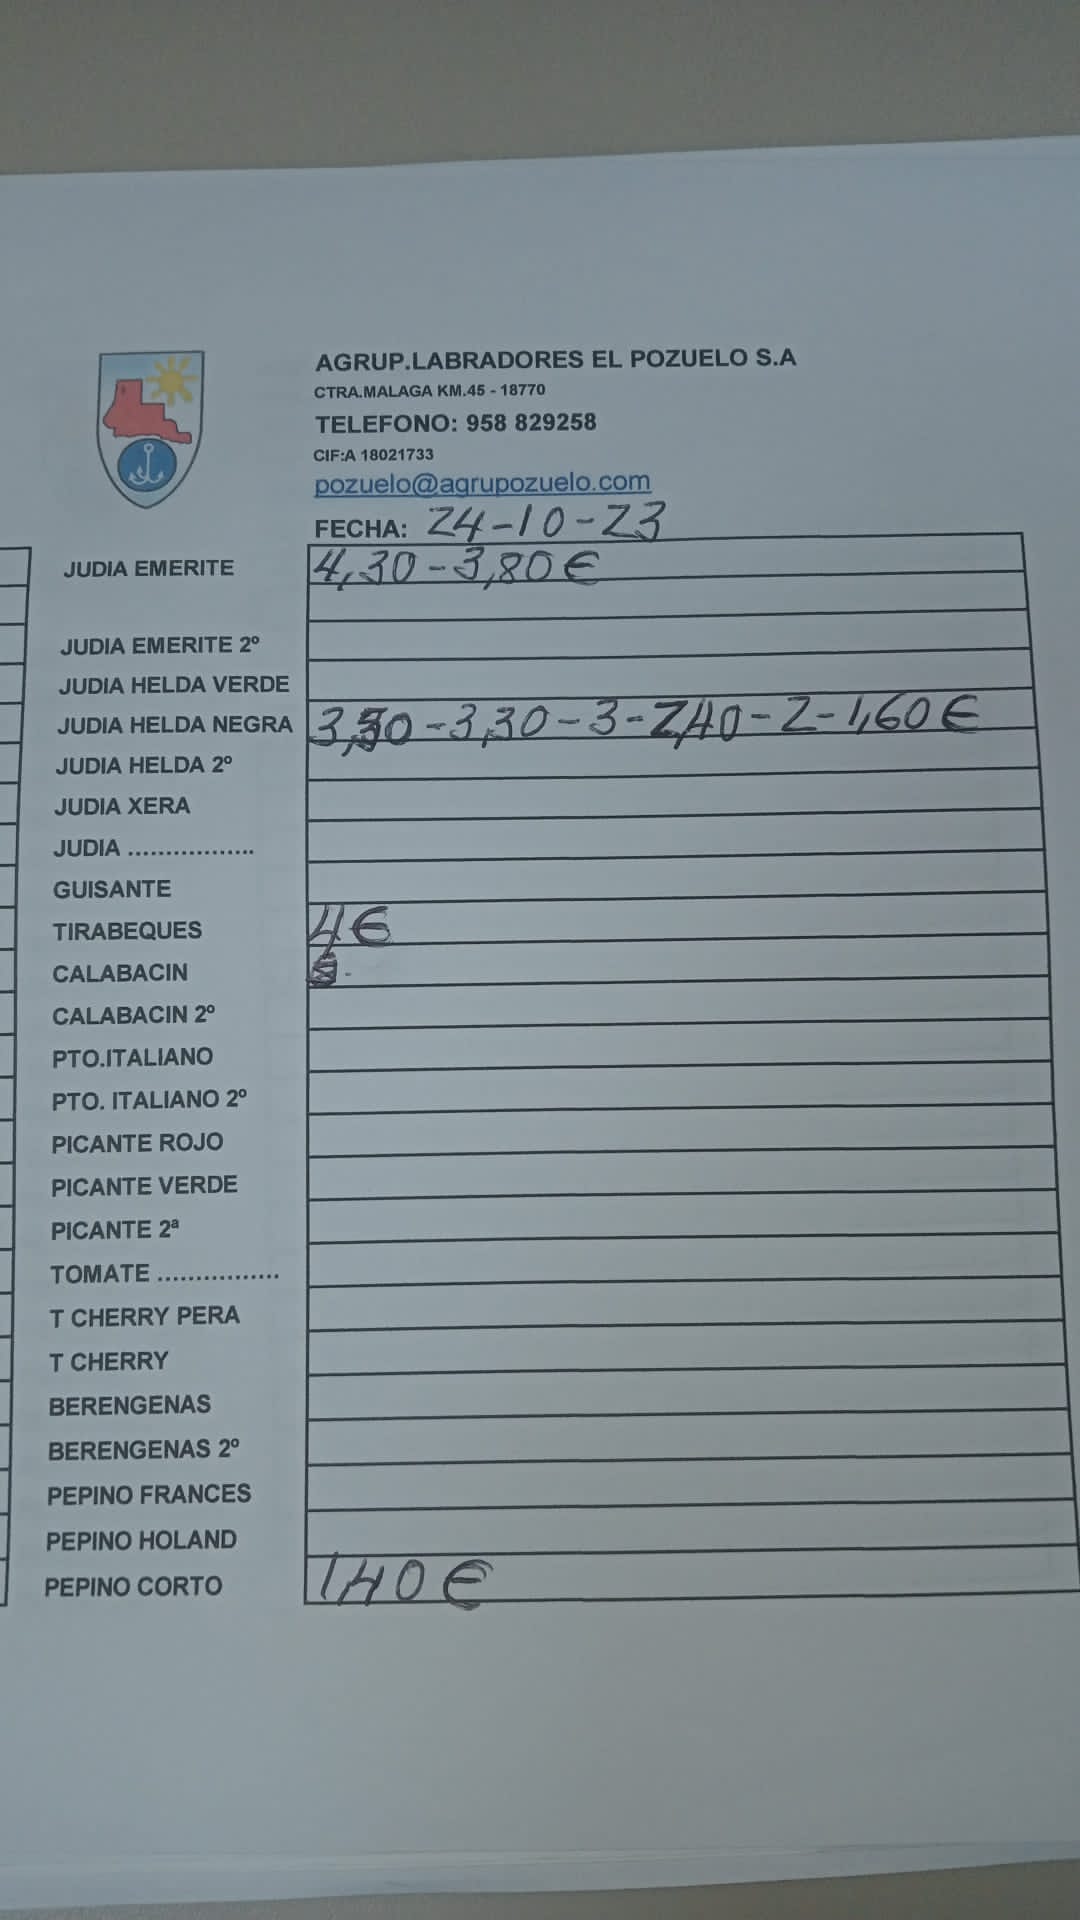 AGRUP.LABRADORES EL POZUELO S.A
CTRA.MALAGA KM.45 - 18770
TELEFONO: 958 829258
CIF:A 18021733
pozuelo@agrupozuelo.com
FECHA: 24-10-23
JUDIA EMERITE 4,30-3,80€
JUDIA EMERITE 2º
JUDIA HELDA VERDE
JUDIA HELDA NEGRA 3,50-3,30-3-2,40-2-1,60€
JUDIA HELDA 2º
JUDIA XERA
JUDIA .................
GUISANTE
TIRABEQUES 4€
CALABACIN
CALABACIN 2º
PTO.ITALIANO
PTO. ITALIANO 2º
PICANTE ROJO
PICANTE VERDE
PICANTE 2ª
TOMATE ................
T CHERRY PERA
T CHERRY
BERENGENAS
BERENGENAS 2º
PEPINO FRANCES
PEPINO HOLAND
PEPINO CORTO 1,40€